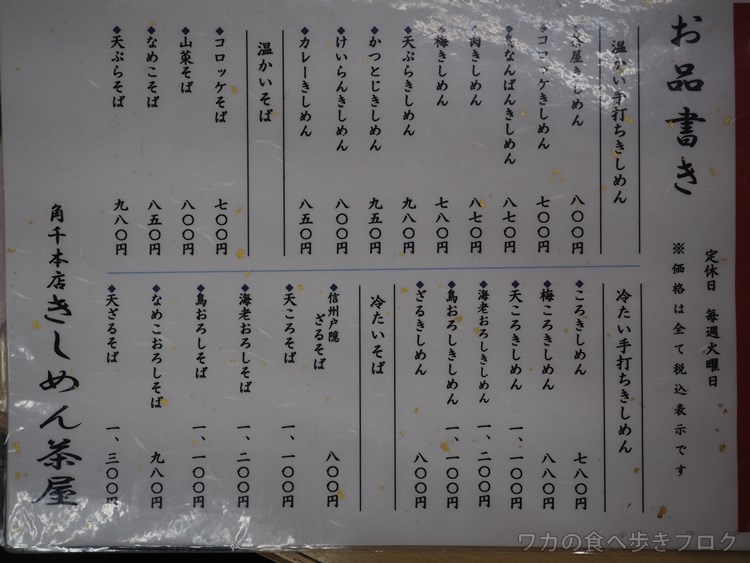 お品書き
定休日 毎週火曜日
※価格は全て税込表示です
温かい手打ちきしめん
茶屋きしめん 八〇〇円
コロッケきしめん 七〇〇円
なんばんきしめん 八七〇円
肉きしめん 八七〇円
梅きしめん 七八〇円
天ぷらきしめん 九八〇円
かつとじきしめん 九五〇円
けいらんきしめん 八〇〇円
カレーきしめん 八五〇円
温かいそば
コロッケそば 七〇〇円
山菜そば 八〇〇円
なめこそば 八五〇円
天ぷらそば 九八〇円
冷たい手打ちきしめん
ころきしめん 七八〇円
梅ころきしめん 八八〇円
天ころきしめん 一、一〇〇円
海老おろしきしめん 一、二〇〇円
鳥おろしきしめん 一、一〇〇円
ざるきしめん 八〇〇円
冷たいそば
信州戸隠
ざるそば 八〇〇円
天ころそば 一、一〇〇円
海老おろしそば 一、二〇〇円
鳥おろしそば 一、一〇〇円
なめこおろしそば 九八〇円
天ざるそば 一、三〇〇円
角千本店 きしめん茶屋
ワカの食べ歩きブログ